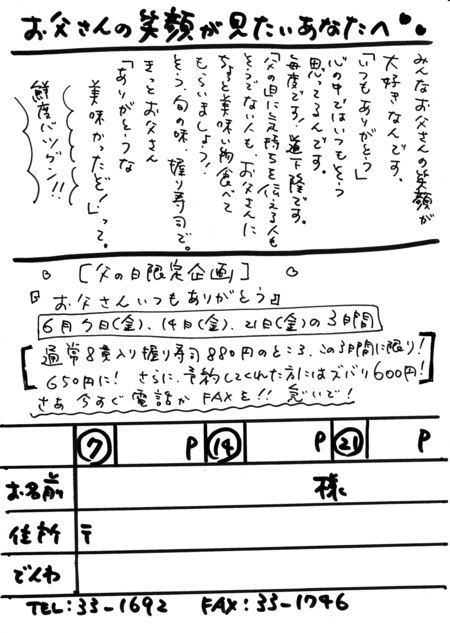 お父さんの笑顔が見たいあなたへ
みんなお父さんの笑顔が
大好きなんです。
「いつもありがとう」
心の中ではいつもそう
思ってるんです。
毎度です!道下隆です。
「父の日に気持ちを伝える人も
そうでない人も、お父さんに
ちょと美味い肉食べて
もらいましょう!
そう、旬の味、握り寿司で。
きっとお父さん
「ありがとうな
美味かったぞ!」って。
鮮度バツグン!!
[父の日限定企画]
『お父さんいつもありがとう』
6月7日(金)、14日(金)、21日(金)の3日間
通常8貫入り握り寿司880円のところ、この3日間に限り!
650円に! さらに、予約してくれた方にはズバリ600円!
さあ今すぐ電話かFAXを!! 急いで!
7 P 14 P 21 P
お名前 様
住所 〒
でんわ
TEL:33-1692 FAX:33-1746